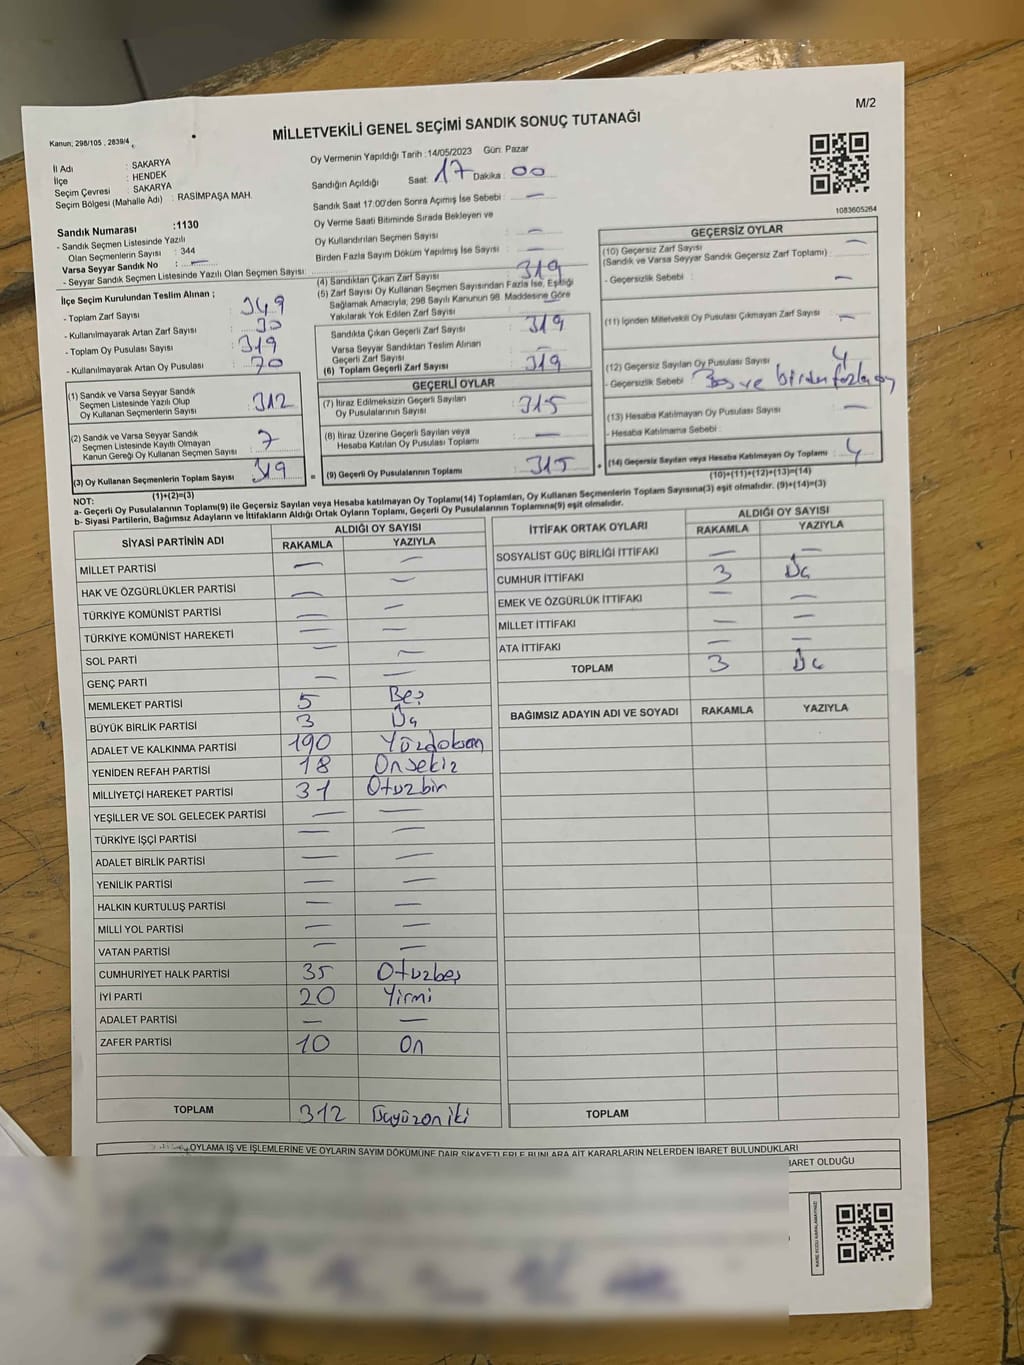 M/2
Kanun; 298/105 , 2839/4
MİLLETVEKİLİ GENEL SEÇİMİ SANDIK SONUÇ TUTANAĞI
İl Adı : SAKARYA
İlçe : HENDEK
Seçim Çevresi : SAKARYA
Seçim Bölgesi (Mahalle Adı) : RASİMPAŞA MAH.
Oy Vermenin Yapıldığı Tarih :14/05/2023 Gün: Pazar
Sandığın Açıldığı Saat: 17 Dakika : 00
Sandık Saat 17:00'den Sonra Açımış İse Sebebi : —
Oy Verme Saati Bitiminde Sırada Bekleyen ve
Oy Kullandırılan Seçmen Sayısı : —
Birden Fazla Sayım Döküm Yapılmış İse Sayısı : —
1083605264
Sandık Numarası :1130
- Sandık Seçmen Listesinde Yazılı
Olan Seçmenlerin Sayısı : 344
Varsa Seyyar Sandık No : —
- Seyyar Sandık Seçmen Listesinde Yazılı Olan Seçmen Sayısı :
İlçe Seçim Kurulundan Teslim Alınan ;
- Toplam Zarf Sayısı : 349
- Kullanılmayarak Artan Zarf Sayısı : 30
- Toplam Oy Pusulası Sayısı : 319
- Kullanılmayarak Artan Oy Pusulası : 70
(1) Sandık ve Varsa Seyyar Sandık
Seçmen Listesinde Yazılı Olup
Oy Kullanan Seçmenlerin Sayısı : 312
(2) Sandık ve Varsa Seyyar Sandık
Seçmen Listesinde Kayıtlı Olmayan
Kanun Gereği Oy Kullanan Seçmen Sayısı : 7
(3) Oy Kullanan Seçmenlerin Toplam Sayısı : 319
(1)+(2)=(3)
(4) Sandıktan Çıkan Zarf Sayısı : 319
(5) Zarf Sayısı Oy Kullanan Seçmen Sayısından Fazla İse, Eşitliği
Sağlamak Amacıyla, 298 Sayılı Kanunun 98. Maddesine Göre
Yakılarak Yok Edilen Zarf Sayısı : —
Sandıkta Çıkan Geçerli Zarf Sayısı : 319
Varsa Seyyar Sandıktan Teslim Alınan
Geçerli Zarf Sayısı : —
(6) Toplam Geçerli Zarf Sayısı : 319
GEÇERLİ OYLAR
(7) İtiraz Edilmeksizin Geçerli Sayılan
Oy Pusulalarının Sayısı : 315
(8) İtiraz Üzerine Geçerli Sayılan veya
Hesaba Katılan Oy Pusulası Toplamı : —
= (9) Geçerli Oy Pusulalarının Toplamı : 315 +
GEÇERSİZ OYLAR
(10) Geçersiz Zarf Sayısı : —
(Sandık ve Varsa Seyyar Sandık Geçersiz Zarf Toplamı)
- Geçersizlik Sebebi : —
(11) İçinden Milletvekili Oy Pusulası Çıkmayan Zarf Sayısı : —
(12) Geçersiz Sayılan Oy Pusulası Sayısı : 4
- Geçersizlik Sebebi : Boş ve birden fazla oy
(13) Hesaba Katılmayan Oy Pusulası Sayısı : —
- Hesaba Katılmama Sebebi :
(14) Geçersiz Sayılan veya Hesaba Katılmayan Oy Toplamı : 4
(10)+(11)+(12)+(13)=(14)
NOT:
a- Geçerli Oy Pusulalarının Toplamı(9) ile Geçersiz Sayılan veya Hesaba katılmayan Oy Toplamı(14) Toplamları, Oy Kullanan Seçmenlerin Toplam Sayısına(3) eşit olmalıdır. (9)+(14)=(3)
b- Siyasi Partilerin, Bağımsız Adayların ve İttifakların Aldığı Ortak Oyların Toplamı, Geçerli Oy Pusulalarının Toplamına(9) eşit olmalıdır.
SİYASİ PARTİNİN ADI ALDIĞI OY SAYISI
RAKAMLA YAZIYLA
MİLLET PARTİSİ — —
HAK VE ÖZGÜRLÜKLER PARTİSİ — —
TÜRKİYE KOMÜNİST PARTİSİ — —
TÜRKİYE KOMÜNİST HAREKETİ — —
SOL PARTİ — —
GENÇ PARTİ — —
MEMLEKET PARTİSİ 5 Beş
BÜYÜK BİRLİK PARTİSİ 3 Üç
ADALET VE KALKINMA PARTİSİ 190 Yüzdoksan
YENİDEN REFAH PARTİSİ 18 Onsekiz
MİLLİYETÇİ HAREKET PARTİSİ 31 Otuzbir
YEŞİLLER VE SOL GELECEK PARTİSİ — —
TÜRKİYE İŞÇİ PARTİSİ — —
ADALET BİRLİK PARTİSİ — —
YENİLİK PARTİSİ — —
HALKIN KURTULUŞ PARTİSİ — —
MİLLİ YOL PARTİSİ — —
VATAN PARTİSİ — —
CUMHURİYET HALK PARTİSİ 35 Otuzbeş
İYİ PARTİ 20 Yirmi
ADALET PARTİSİ — —
ZAFER PARTİSİ 10 On
TOPLAM 312 Üçyüzoniki
İTTİFAK ORTAK OYLARI ALDIĞI OY SAYISI
RAKAMLA YAZIYLA
SOSYALİST GÜÇ BİRLİĞİ İTTİFAKI — —
CUMHUR İTTİFAKI 3 Üç
EMEK VE ÖZGÜRLÜK İTTİFAKI — —
MİLLET İTTİFAKI — —
ATA İTTİFAKI — —
TOPLAM 3 Üç
BAĞIMSIZ ADAYIN ADI VE SOYADI RAKAMLA YAZIYLA
TOPLAM
OYLAMA İŞ VE İŞLEMLERİNE VE OYLARIN SAYIM DÖKÜMÜNE DAİR ŞİKAYETLERLE BUNLARA AİT KARARLARIN NELERDEN İBARET BULUNDUKLARI
İBARET OLDUĞU